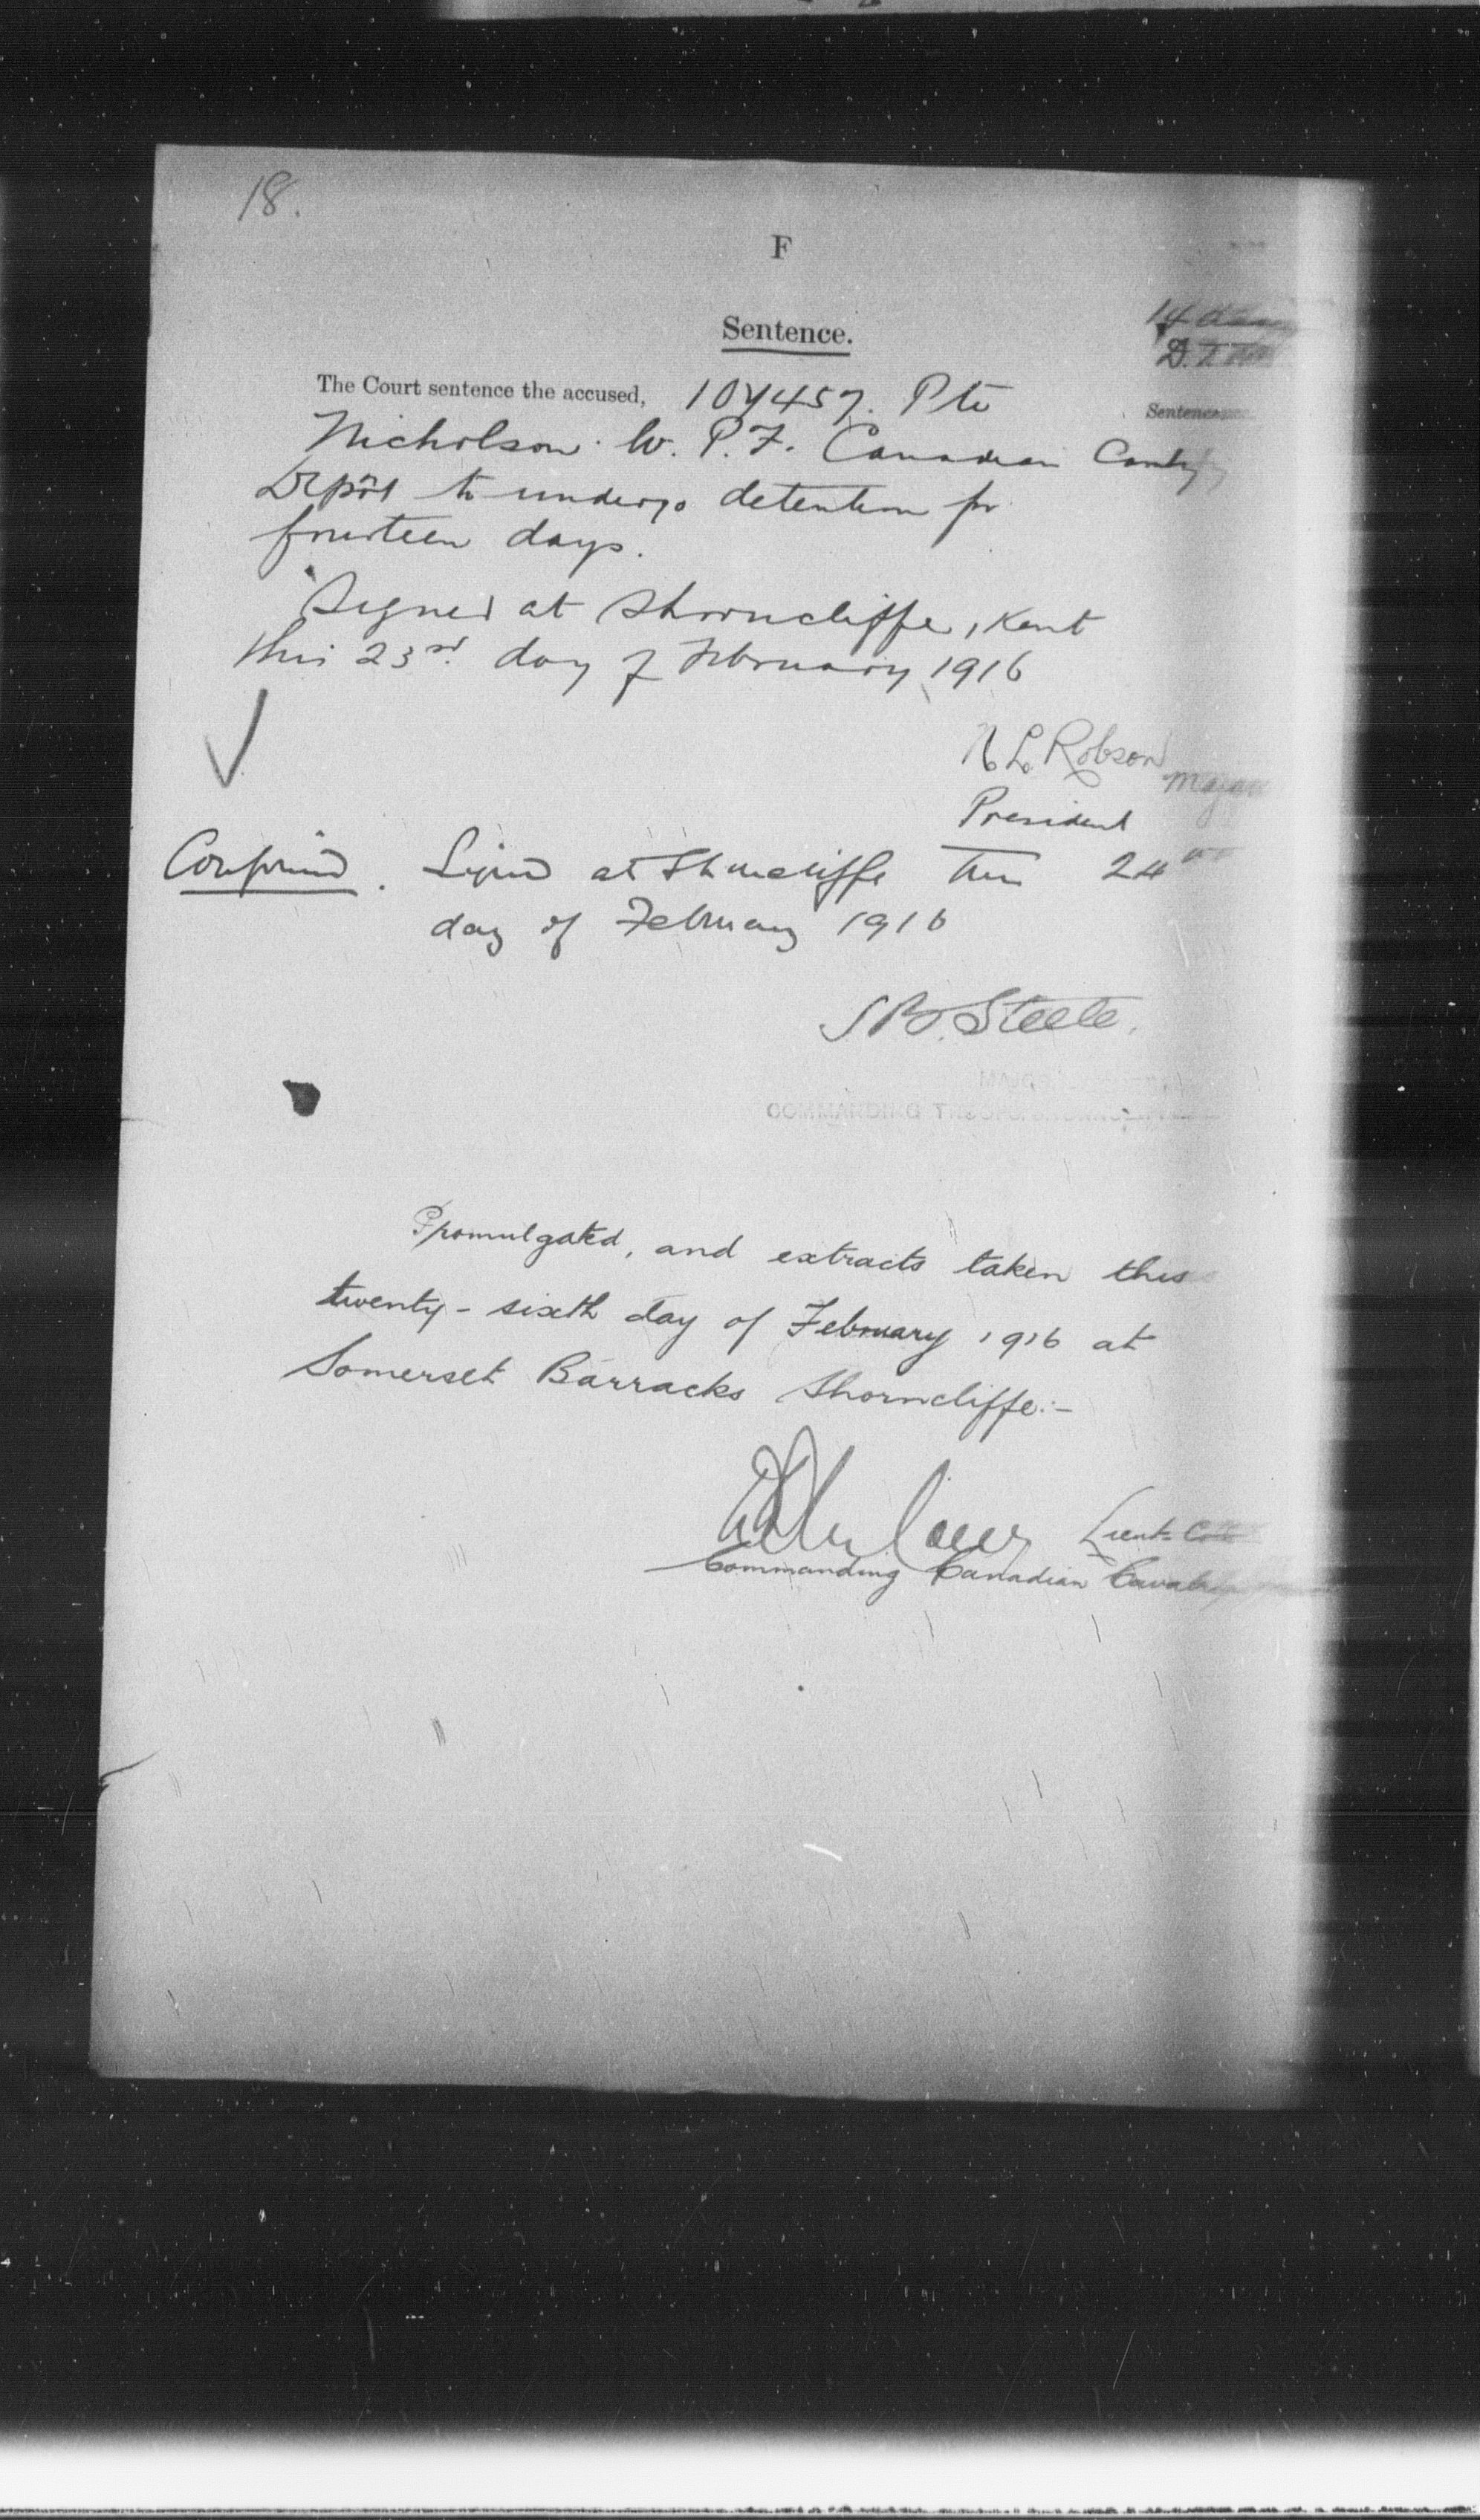 18.
F
Sentence.
The Court sentence the accused, 107457. Pte
Sentence
Nicholson. W. P. F. Canadian Cavly
Depôt to undergo detention for
fourteen days.
Signed at Shorncliffe, Kent
this 23rd day of February 1916
Robson Major
President
Confirmed. Signed at Shorncliffe this 24th
day of February 1916
S B. Steele.
COMMANDING
Promulgated, and extracts taken this
twenty-sixth day of February 1916 at
Somerset Barracks Shorncliffe:-
Lieut-Col
Commanding Canadian Cavalry